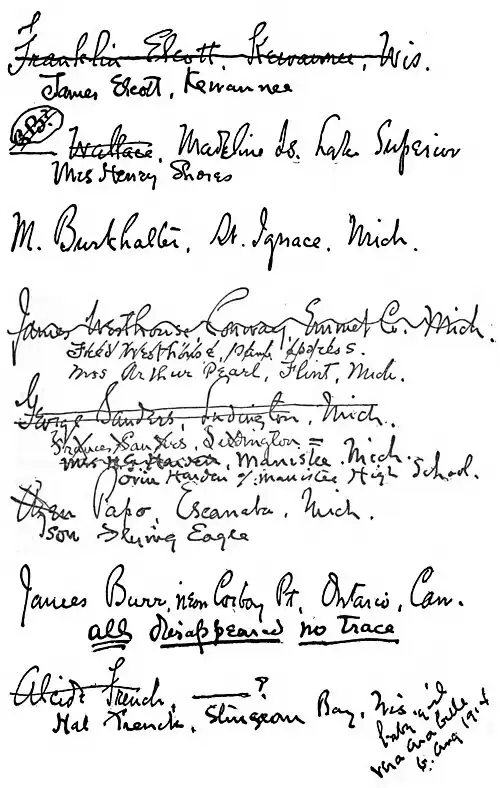 Franklin Elcott, Kewaunee, Wis.
James Elcott, Kewannee
Wallace, Madeline Is. Lake Superior
Mrs Henry Shores
M. Burkhalter, St. Ignace, Mich.
James Westhouse Conway, Emmet Co. Mich.
Fred Westhouse, same address.
Mrs Arthur Pearl, Flint, Mich.
George Sanders, Ludington, Mich.
Frances Sanders, Ludington =
Mrs H.G. Harden, Manistee, Mich.
Harden % Manistee High School.
Papo, Escanaba, Mich.
son Flying Eagle
James Burr, near Corbay Pt, Ontario, Can.
all disappeared no trace
Alcide French, ?
Hal French, Sturgeon Bay, Wis
Aug 1914